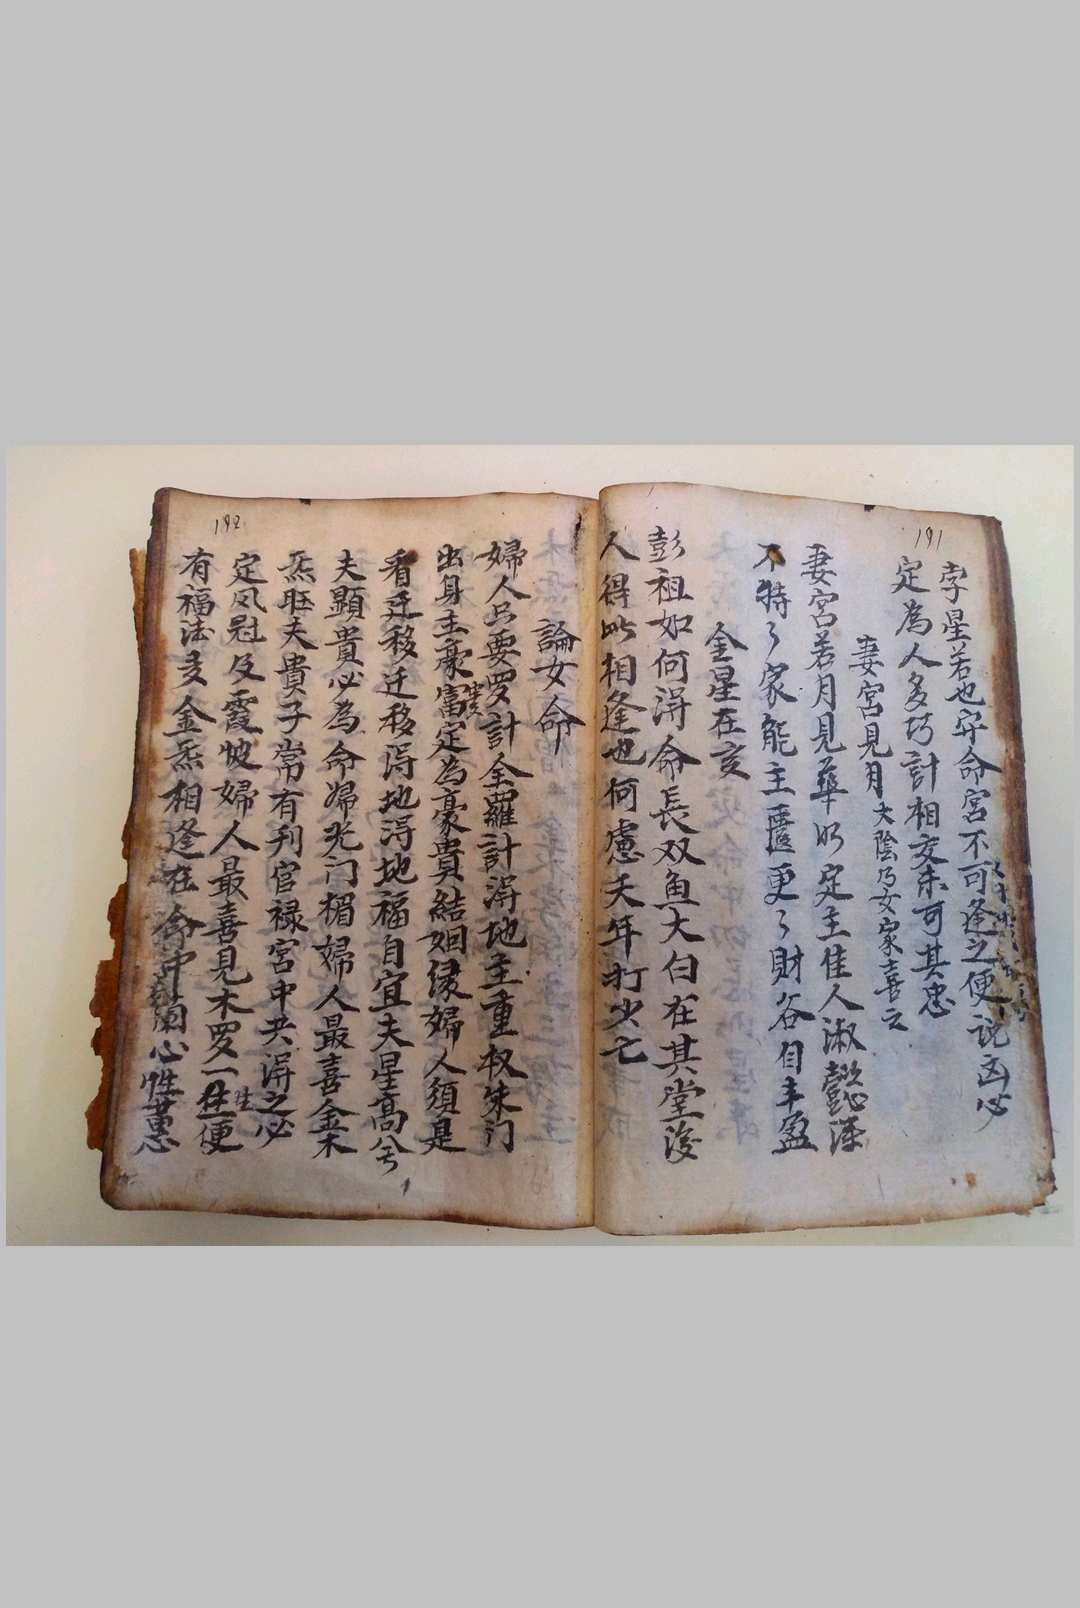 191
孛星若也守命宮不可逢之便說凶必
定為人多巧計相交未可其忠
妻宮見月 太陰乃女家喜云
妻宮若月見華 定主佳人淑懿
不特々家能主匱更々財谷自丰盈
金星在亥
彭祖如何淂命長双鱼太白在其堂
人得此相逢也何慮夭年打少亡
192
論女命
婦人只要罗計全羅計淂地主重权朱门
出身主豪富定為豪貴結姻缘婦人須是
看迁移迁移淂地淂地福自宜夫星高兮
夫顯貴必為命婦光门楣婦人最喜金木
炁旺夫貴子常有刋官禄宮中共淂之必
定凤冠及霞帔婦人最喜見木罗一生便
有福法多金炁相逢在命中蘭心性蕙